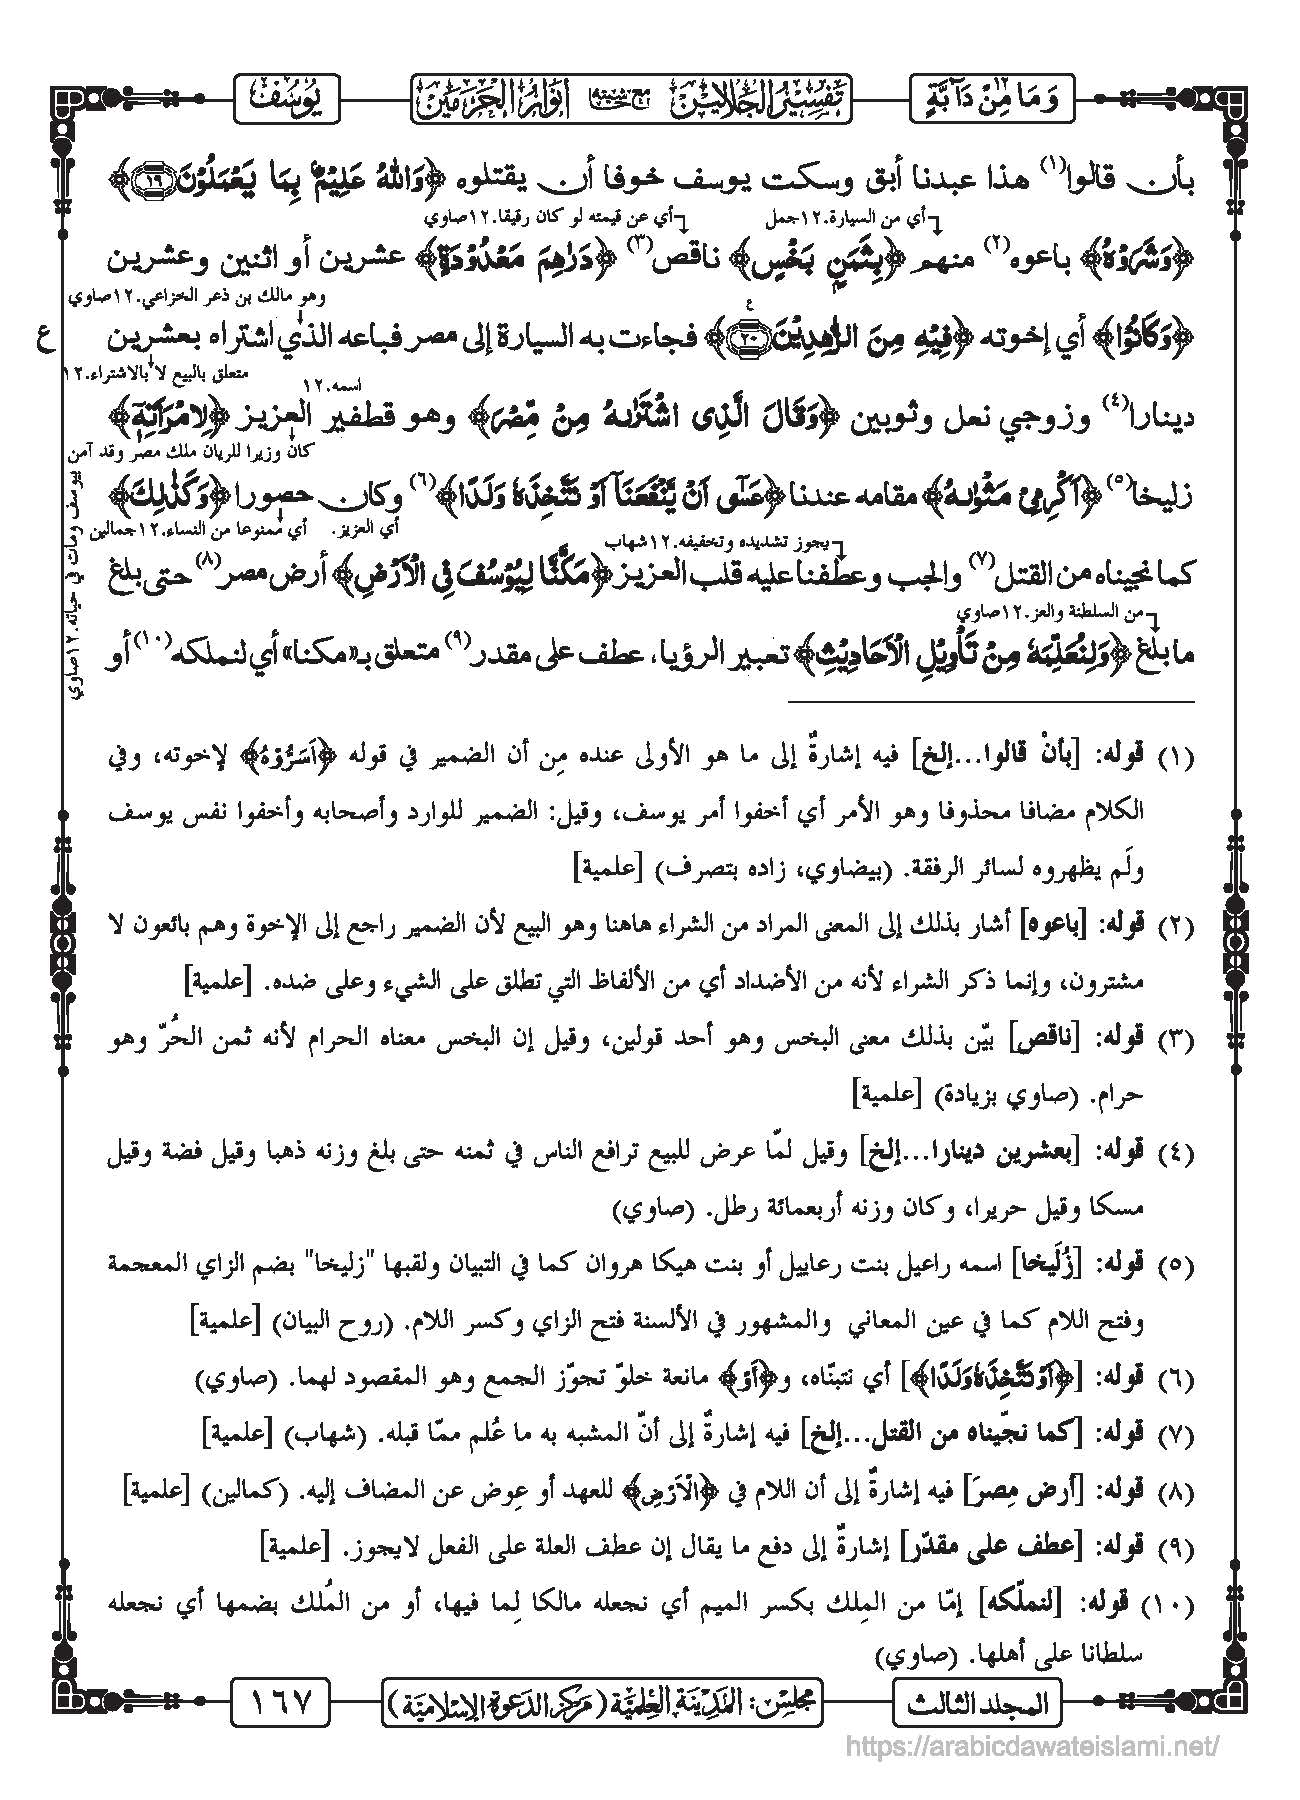 وَمَا مِنْ دَآبَّةٍ ١٢
تفسير الجلالين مع حاشيته أنوار الحرمين
يُوسُف
بأن قالوا(١) هذا عبدنا أبق وسكت يوسف خوفا أن يقتلوه ﴿وَاللهُ عَلِيْمٌۢ بِمَا يَعْمَلُوْنَ ١٩﴾
أي من السيارة.١٢جمل
أي عن قيمته لو كان رقيقا.١٢صاوي
﴿وَشَرَوْهُ﴾ باعوه(٢) منهم ﴿بِثَمَنٍۭ بَخْسٍ﴾ ناقص(٣) ﴿دَرَاهِمَ مَعْدُوْدَةٍ﴾ عشرين أو اثنين وعشرين
وهو مالك بن ذعر الخزاعي.١٢صاوي
﴿وَكَانُوْا﴾ أي إخوته ﴿فِيْهِ مِنَ الزّٰهِدِيْنَ ٢٠﴾ فجاءت به السيارة إلى مصر فباعه الذي اشتراه بعشرين
ع
متعلق بالبيع لا بالاشتراء.١٢
اسمه.١٢
دينارا(٤) وزوجي نعل وثوبين ﴿وَقَالَ الَّذِى اشْتَرٰىهُ مِنْ مِّصْرَ﴾ وهو قطفير العزيز ﴿لِامْرَاَتِهٖٓ﴾
كان وزيرا للريان ملك مصر وقد آمن
بيوسف ومات في حياته.١٢صاوي
زليخا(٥) ﴿اَكْرِمِىْ مَثْوٰىهُ﴾ مقامه عندنا ﴿عَسٰٓى اَنْ يَّنْفَعَنَآ اَوْ نَتَّخِذَهٗ وَلَدًا﴾(٦) وكان حصورا ﴿وَكَذٰلِكَ﴾
أي العزيز.
أي ممنوعا من النساء.١٢جمالين
يجوز تشديده وتخفيفه.١٢شهاب
كما نجيناه من القتل(٧) والجب وعطفنا عليه قلب العزيز ﴿مَكَّنَّا لِيُوْسُفَ فِى الْاَرْضِ﴾ أرض مصر(٨) حتى بلغ
من السلطنة والعز.١٢صاوي
ما بلغ ﴿وَلِنُعَلِّمَهٗ مِنْ تَاْوِيْلِ الْاَحَادِيْثِ﴾ تعبير الرؤيا، عطف على مقدر(٩) متعلق بـ«مكنا» أي لنملكه(١٠) أو
(١) قوله: [بأنْ قالوا...إلخ] فيه إشارةٌ إلى ما هو الأولى عنده مِن أن الضمير في قوله ﴿اَسَرُّوْهُ﴾ لإخوته، وفي
الكلام مضافا محذوفا وهو الأمر أي أخفوا أمر يوسف، وقيل: الضمير للوارد وأصحابه وأخفوا نفس يوسف
ولَم يظهروه لسائر الرفقة. (بيضاوي، زاده بتصرف) [علمية]
(٢) قوله: [باعوه] أشار بذلك إلى المعنى المراد من الشراء هاهنا وهو البيع لأن الضمير راجع إلى الإخوة وهم بائعون لا
مشترون، وإنما ذكر الشراء لأنه من الأضداد أي من الألفاظ التي تطلق على الشيء وعلى ضده. [علمية]
(٣) قوله: [ناقص] بيّن بذلك معنى البخس وهو أحد قولين، وقيل إن البخس معناه الحرام لأنه ثمن الحُرّ وهو
حرام. (صاوي بزيادة) [علمية]
(٤) قوله: [بعشرين دينارا...إلخ] وقيل لمّا عرض للبيع ترافع الناس في ثمنه حتى بلغ وزنه ذهبا وقيل فضة وقيل
مسكا وقيل حريرا، وكان وزنه أربعمائة رطل. (صاوي)
(٥) قوله: [زُلَيخا] اسمه راعيل بنت رعاييل أو بنت هيكا هروان كما في التبيان ولقبها "زليخا" بضم الزاي المعجمة
وفتح اللام كما في عين المعاني والمشهور في الألسنة فتح الزاي وكسر اللام. (روح البيان) [علمية]
(٦) قوله: [﴿اَوْ نَتَّخِذَهٗ وَلَدًا﴾] أي نتبنّاه، و﴿اَوْ﴾ مانعة خلوّ تجوّز الجمع وهو المقصود لهما. (صاوي)
(٧) قوله: [كما نجّيناه من القتل...إلخ] فيه إشارةٌ إلى أنّ المشبه به ما عُلم ممّا قبله. (شهاب) [علمية]
(٨) قوله: [أرض مِصرَ] فيه إشارةٌ إلى أن اللام في ﴿الْاَرْضِ﴾ للعهد أو عِوض عن المضاف إليه. (كمالين) [علمية]
(٩) قوله: [عطف على مقدّر] إشارةٌ إلى دفع ما يقال إن عطف العلة على الفعل لايجوز. [علمية]
(١٠) قوله: [لنملّكه] إمّا من المِلك بكسر الميم أي نجعله مالكا لِما فيها، أو من المُلك بضمها أي نجعله
سلطانا على أهلها. (صاوي)
المجلد الثالث
مجلس: المدينة العلمية (مركز الدعوة الإسلامية)
١٦٧
https://arabicdawateislami.net/